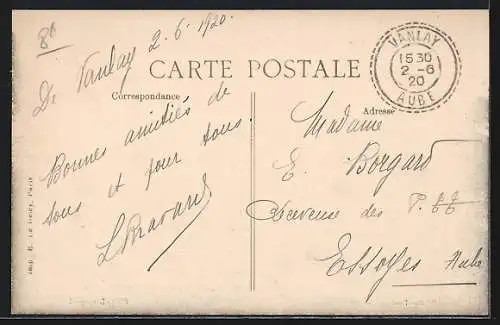 86
De Vanlay 2.6.1920.
CARTE POSTALE
Correspondance
Adresse
VANLAY
15 30
2 -6
20
AUBE
Bonnes amitiés de
tous et pour tous.
Madame
E. Borgard
des P.
Essoyes Aube
Paris